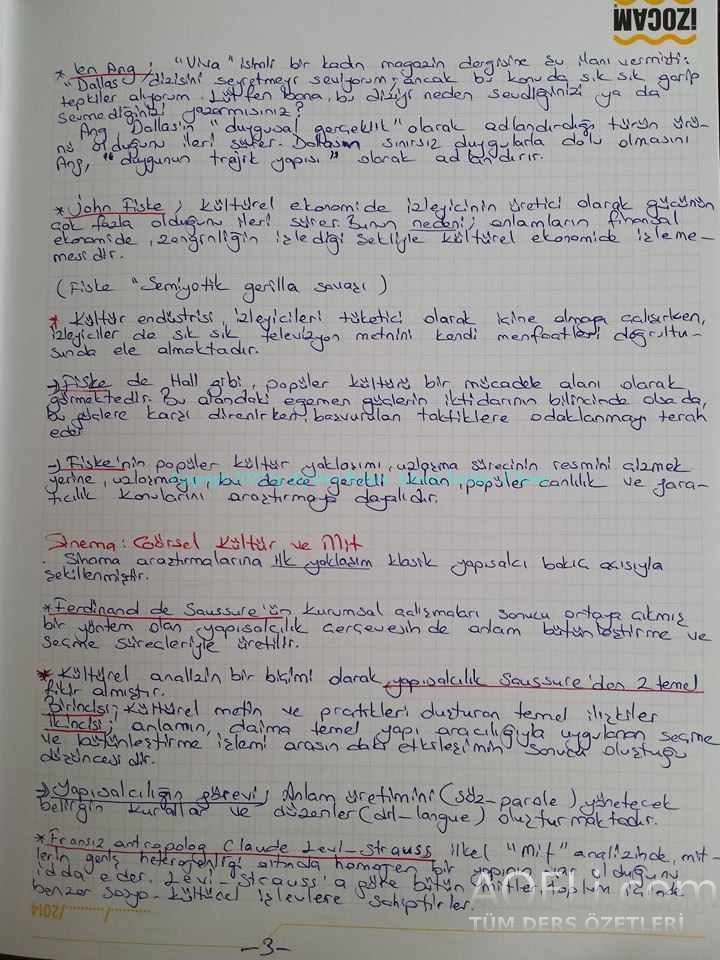 İZOCAM
* Ien Ang ; "Viva" isimli bir kadın magazin dergisine şu ilanı vermişti:
"Dallas dizisini seyretmeyi seviyorum; ancak bu konuda sık sık garip
tepkiler alıyorum. Lütfen bana, bu diziyi neden sevdiğinizi ya da
sevmediğinizi yazarmısınız?
Ang Dallas'ın "duygusal gerçeklik" olarak adlandırdığı türün ürü-
nü olduğunu ileri sürer. Dallasın sınırsız duygularla dolu olmasını
Ang, "duygunun trajik yapısı" olarak adlandırır.
* John Fiske ; kültürel ekonomide izleyicinin üretici olarak gücünün
çok fazla olduğunu ileri sürer. Bunun nedeni; anlamların finansal
ekonomide, zenginliğin izlediği şekliyle kültürel ekonomide izleme-
mesidir.
(Fiske "Semiyotik gerilla savaşı)
* Kültür endüstrisi, izleyicileri tüketici olarak içine almaya çalışırken,
izleyiciler de sık sık televizyon metnini kendi menfaatleri doğrultu-
sunda ele almaktadır.
→ Fiske de Hall gibi, popüler kültürü bir mücadele alanı olarak
görmektedir. Bu alandaki egemen güçlerin iktidarının bilincinde olsa da,
bu güçlere karşı direnirken, başvurulan taktiklere odaklanmayı tercih
eder
→ Fiske'nin popüler kültür yaklaşımı, uzlaşma sürecinin resmini çizmek
yerine, uzlaşmayı bu derece gerekli kılan, popüler canlılık ve yara-
tıcılık konularını araştırmaya dayalıdır.
Sinema: Görsel Kültür ve Mit
. Sinama araştırmalarına ilk yaklaşım klasik yapısalcı bakış açısıyla
şekillenmiştir.
* Ferdinand de Saussure'ün kurumsal çalışmaları sonucu ortaya çıkmış
bir yöntem olan yapısalcılık çerçevesinde anlam bütünleştirme ve
seçme süreçleriyle üretilir.
* Kültürel analizin bir biçimi olarak yapısalcılık Saussure'den 2 temel
fikir almıştır.
Birincisi; kültürel metin ve pratikleri oluşturan temel ilişkiler
ikincisi; anlamın, daima temel yapı aracılığıyla uygulanan seçme
ve bütünleştirme işlemi arasındaki etkileşimin sonucu oluştuğu
düşüncesidir.
→ Yapısalcılığın görevi; Anlam üretimini (söz-parole) yönetecek
belirgin kurallar ve düzenler (dil-langue) oluşturmaktadır.
* Fransız antropolog Claude Levi-Strauss ilkel "Mit" analizinde, mit-
lerin geniş heterojenliği altında homojen bir yapının var olduğunu
idda eder. Levi-Strauss'a göre bütün mitler toplum içinde
benzer sosyo-kültürel işlevlere sahiptirler.
AOFLi.com
TÜM DERS ÖZETLERİ
...../...../2014
-3-